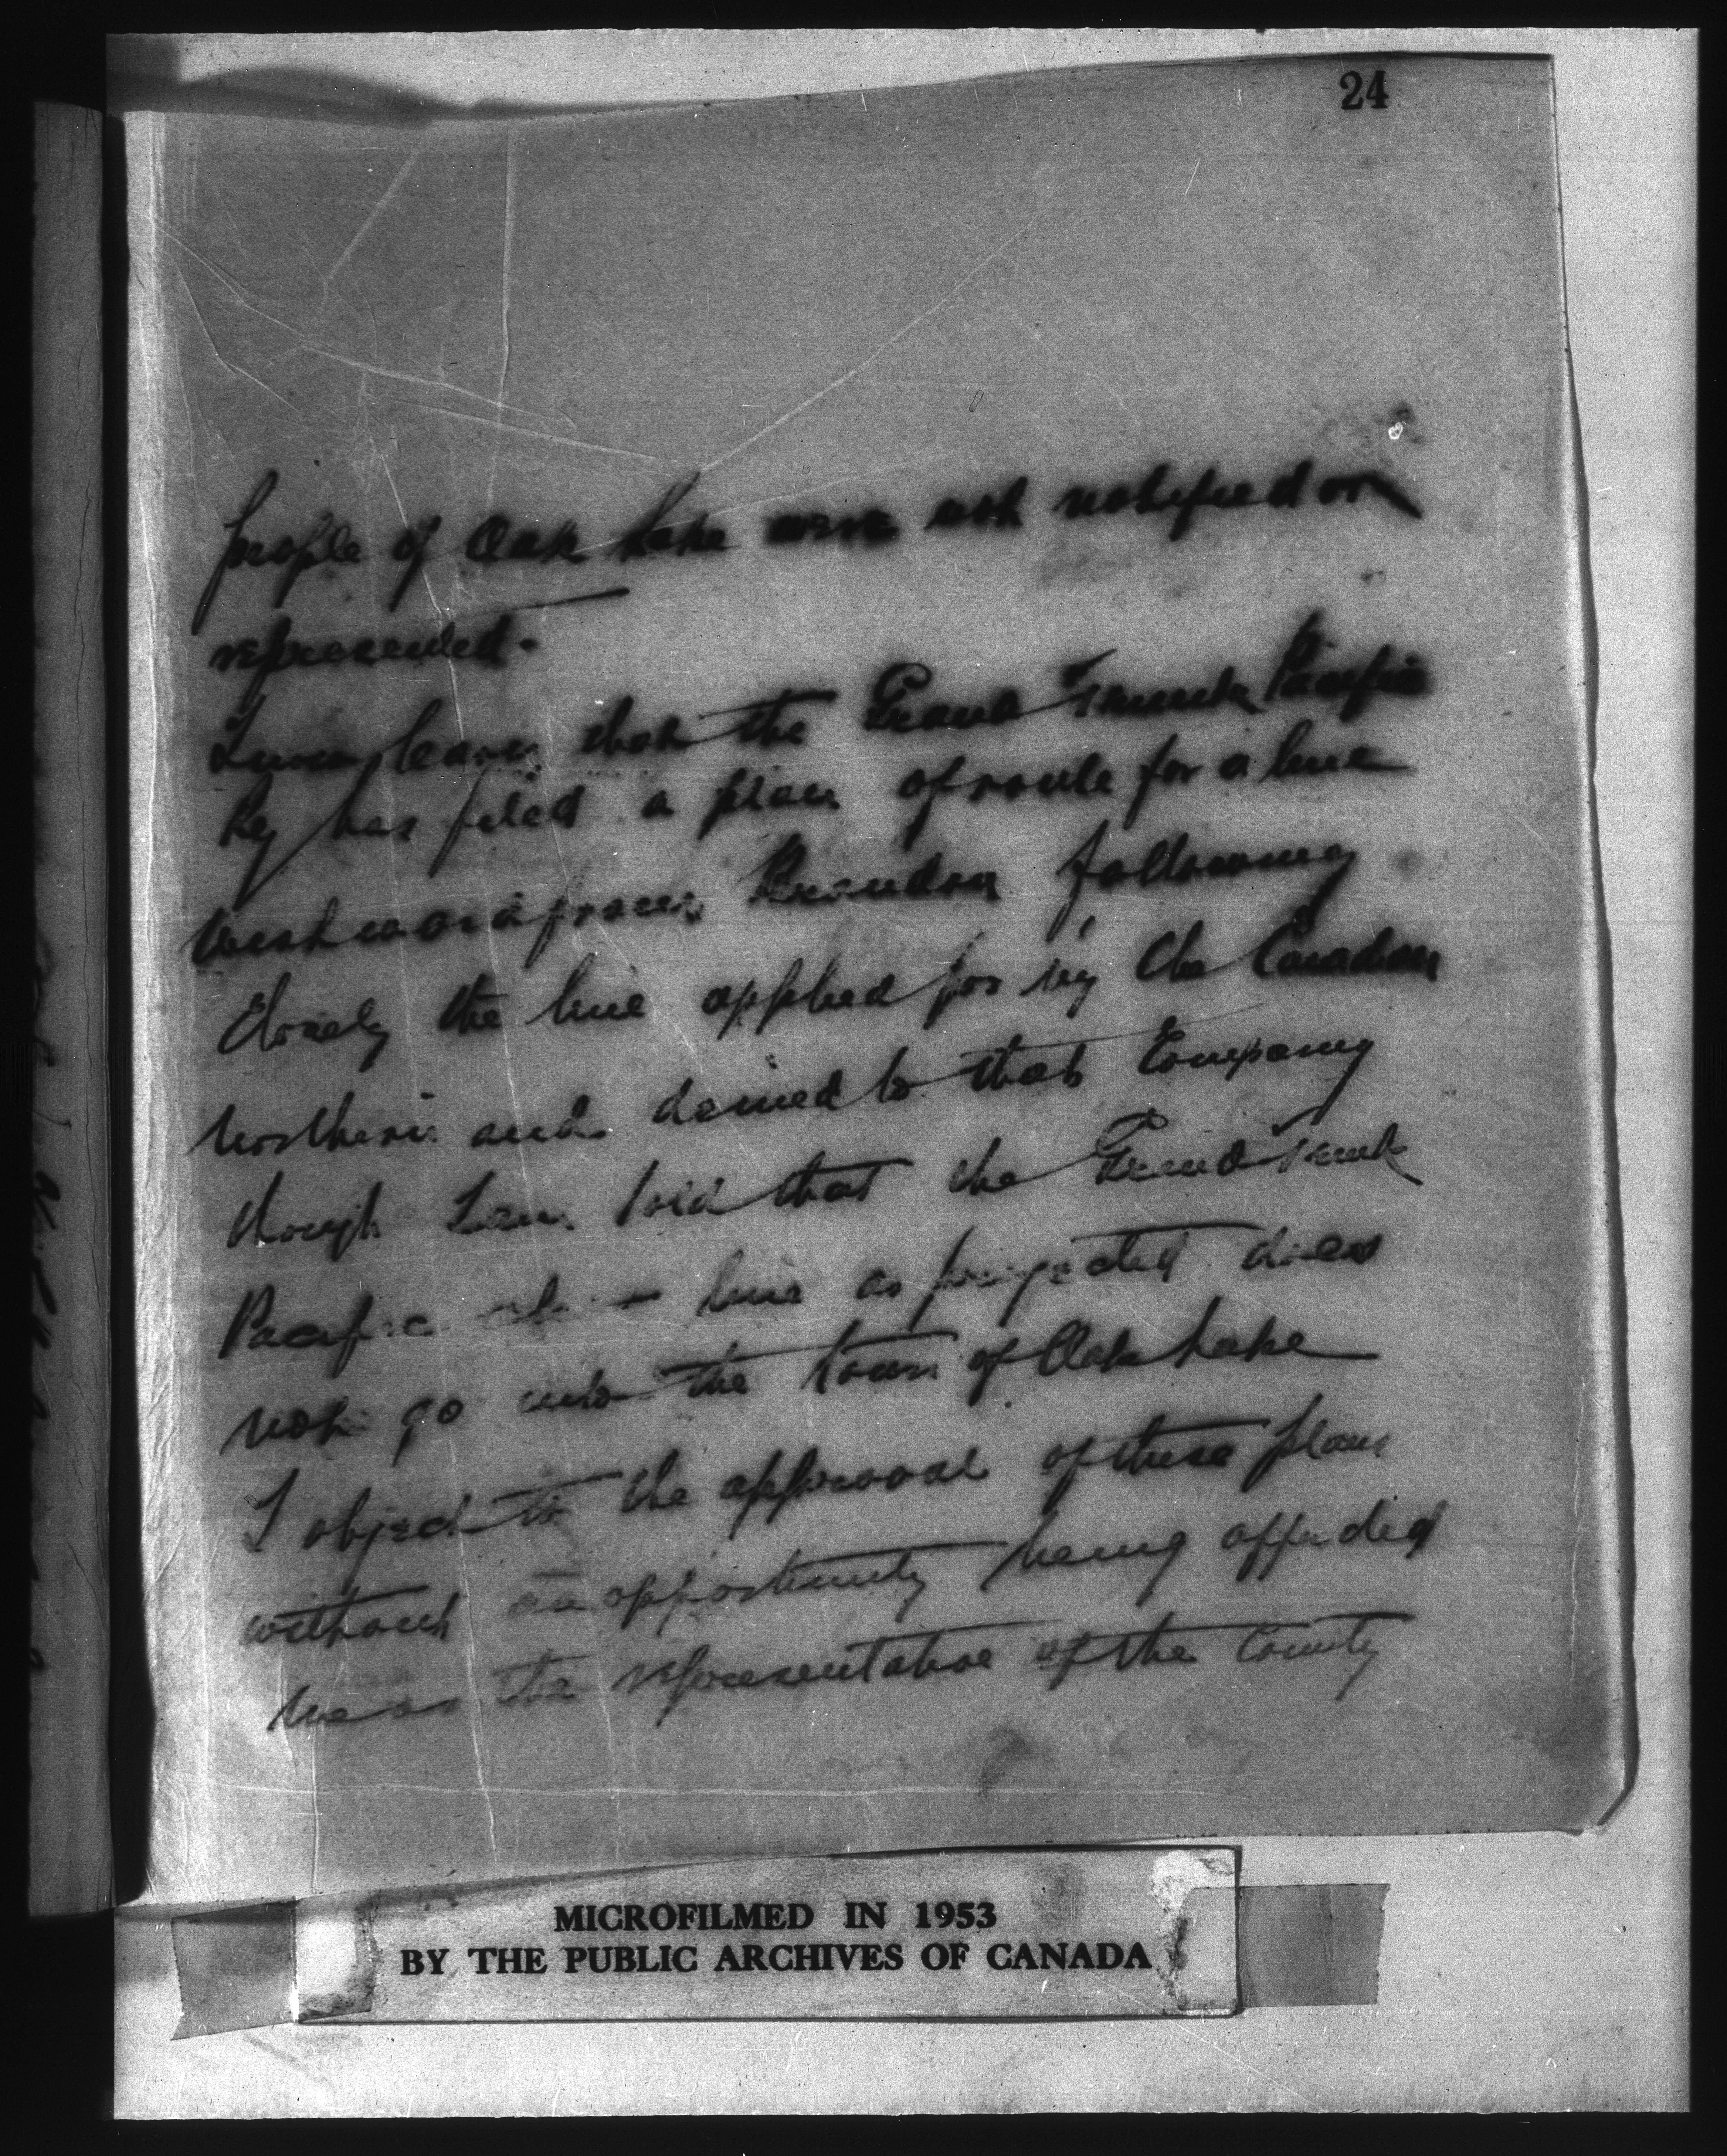 24
people of Oak Lake were not notified or
represented.
I now learn that the Grand Trunk Pacific
Ry has filed a plan of route for a line
Westward from Brandon following
Closely the line applied for by the Canadian
Northern and denied to that Company
though I am told that the Grand Trunk
Pacific line as projected does
not go into the town of Oak Lake
I object to the approval of these plans
without an opportunity being afforded
me as the representative of the County
MICROFILMED IN 1953
BY THE PUBLIC ARCHIVES OF CANADA